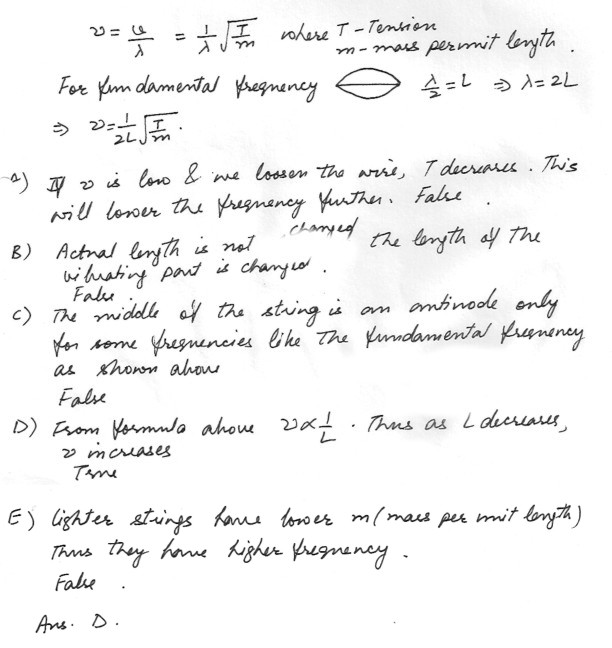 ν = v/λ = 1/λ √(T/m) where T - Tension
m - mass per unit length.
For fundamental frequency λ/2 = L ⇒ λ = 2L
⇒ ν = 1/2L √(T/m).
a) If ν is low & we loosen the wire, T decreases. This
will lower the frequency further. False.
B) Actual length is not changed the length of the
vibrating part is changed.
False.
C) The middle of the string is an antinode only
for some frequencies like the fundamental frequency
as shown above
False
D) From formula above ν ∝ 1/L. Thus as L decreases,
ν increases
True
E) lighter strings have lower m (mass per unit length)
Thus they have higher frequency.
False.
Ans. D.